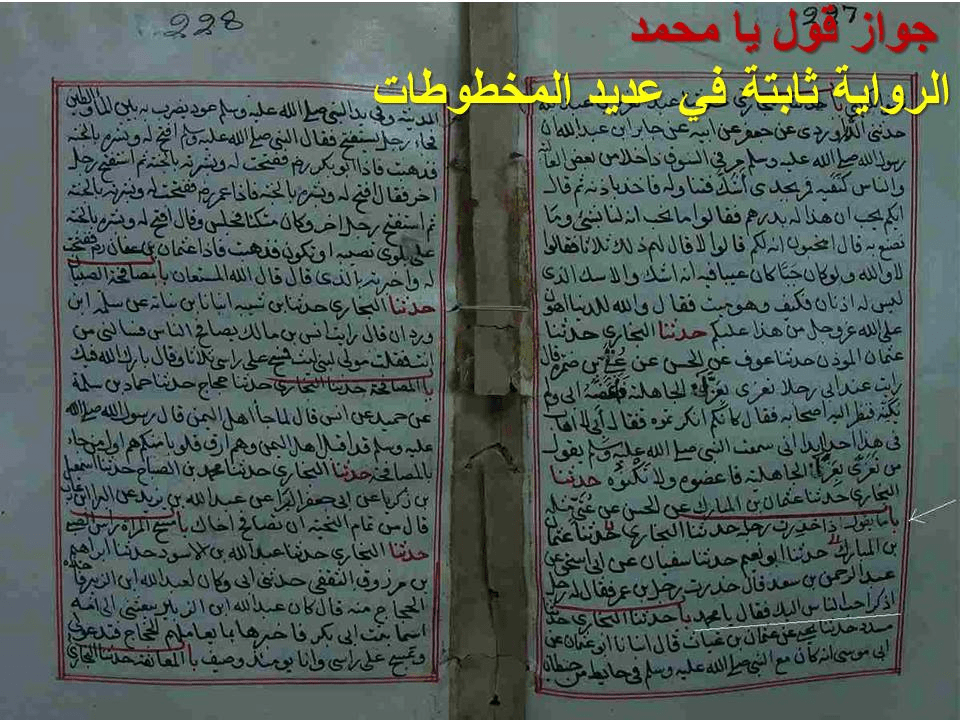 جواز قول يا محمد
الرواية ثابتة في عديد المخطوطات
227
حدثني الدراوردي عن جعفر عن ابيه عن جابر ابن عبد الله ان
رسول الله صلى الله عليه وسلم مر في السوق داخلا من بعض العالية
والناس كنفيه فمر بجدي اسك فتناوله فاخذ باذنه ثم قال
ايكم يحب ان هذا له بدرهم فقالوا ما نحب انه لنا بشئ وما
نصنع به قال اتحبون انه لكم قالوا لا قال لهم ذلك ثلاثا فقالوا
لا والله ولو كان حيا كان عيبا فيه انه اسك والاسك الذي
ليس له اذنان فكيف وهو ميت فقال والله للدنيا اهون
على الله عز وجل من هذا عليكم حدثنا البخاري حدثنا
عثمان المؤذن حدثنا عوف عن الحسن عن عتي بن ضمرة قال
رايت عند ابي رجلا تعزى بعزاء الجاهلية فاعضه ابي ولم
يكنه فنظر اليه اصحابه فقال كانكم انكرتموه فقال اني لا اهاب
في هذا احدا ابدا اني سمعت النبي صلى الله عليه وسلم يقول
من تعزى بعزاء الجاهلية فاعضوه ولا تكنوه حدثنا
البخاري حدثنا عثمان بن المبارك عن الحسن عن عتي مثله
باب ما يقول اذا خدرت رجله حدثنا البخاري حدثنا عثمان
بن المبارك حدثنا ابو نعيم حدثنا سفيان عن ابي اسحق عن
عبد الرحمن بن سعد قال خدرت رجل بن عمر فقال له رجل
اذكر احب الناس اليك فقال يا محمد باب حدثنا البخاري حدثنا
مسدد حدثنا يحيى عن عثمان بن غياث قال انبانا ابو عثمان عن
ابي موسى انه كان مع النبي صلى الله عليه وسلم في حايط من حيطان
228
المدينة وفي يد النبي صلى الله عليه وسلم عود يضرب به بين الماء والطين
فجاء رجل يستفتح فقال النبي صلى الله عليه وسلم افتح له وبشره بالجنة
فذهبت فاذا ابو بكر رض ففتحت له وبشرته بالجنة ثم استفتح رجل
اخر فقال افتح له وبشره بالجنة فاذا عمر رض ففتحت له وبشرته بالجنة
ثم استفتح رجل اخر وكان متكئا فجلس وقال افتح له وبشره بالجنة
على بلوى تصيبه او تكون فذهبت فاذا عثمان بن عفان رض ففتحت
له واخبرته بالذي قال قال الله المستعان باب مصافحة الصبيان
حدثنا البخاري حدثنا بن شيبه انبانا بن نباتة عن سلمه ابن
وردان قال رايت انس بن مالك يصافح الناس فسالني من
انت فقلت مولى لبني ليث فمسح على راسي ثلاثا وقال بارك الله فيك
باب المصافحة حدثنا البخاري حدثنا حجاج حدثنا حماد بن سلمة
عن حميد عن انس قال لما جاء اهل اليمن قال رسول الله صلى الله
عليه وسلم قد اقبل اهل اليمن وهم ارق قلوبا منكم هم اول من جاء
بالمصافحة حدثنا البخاري حدثنا محمد بن الصباح حدثنا اسمعيل
بن زكريا عن ابي جعفر الفراء عن عبد الله بن يزيد عن البراء بن عازب
قال من تمام التحية ان تصافح اخاك باب مسح المراة راس الصبي
حدثنا البخاري حدثنا عبد الله بن الاسود حدثنا ابراهيم
بن مرزوق الثقفي حدثني ابي وكان لعبد الله ابن الزبير فاخذه
الحجاج منه قال كان عبد الله ابن الزبير بعثني الى امه
اسما بنت ابي بكر فاخبرها بما يعاملهم الحجاج فتدعو لي
وتمسح على راسي وانا يومئذ وصيف باب المعانقة حدثنا البخاري